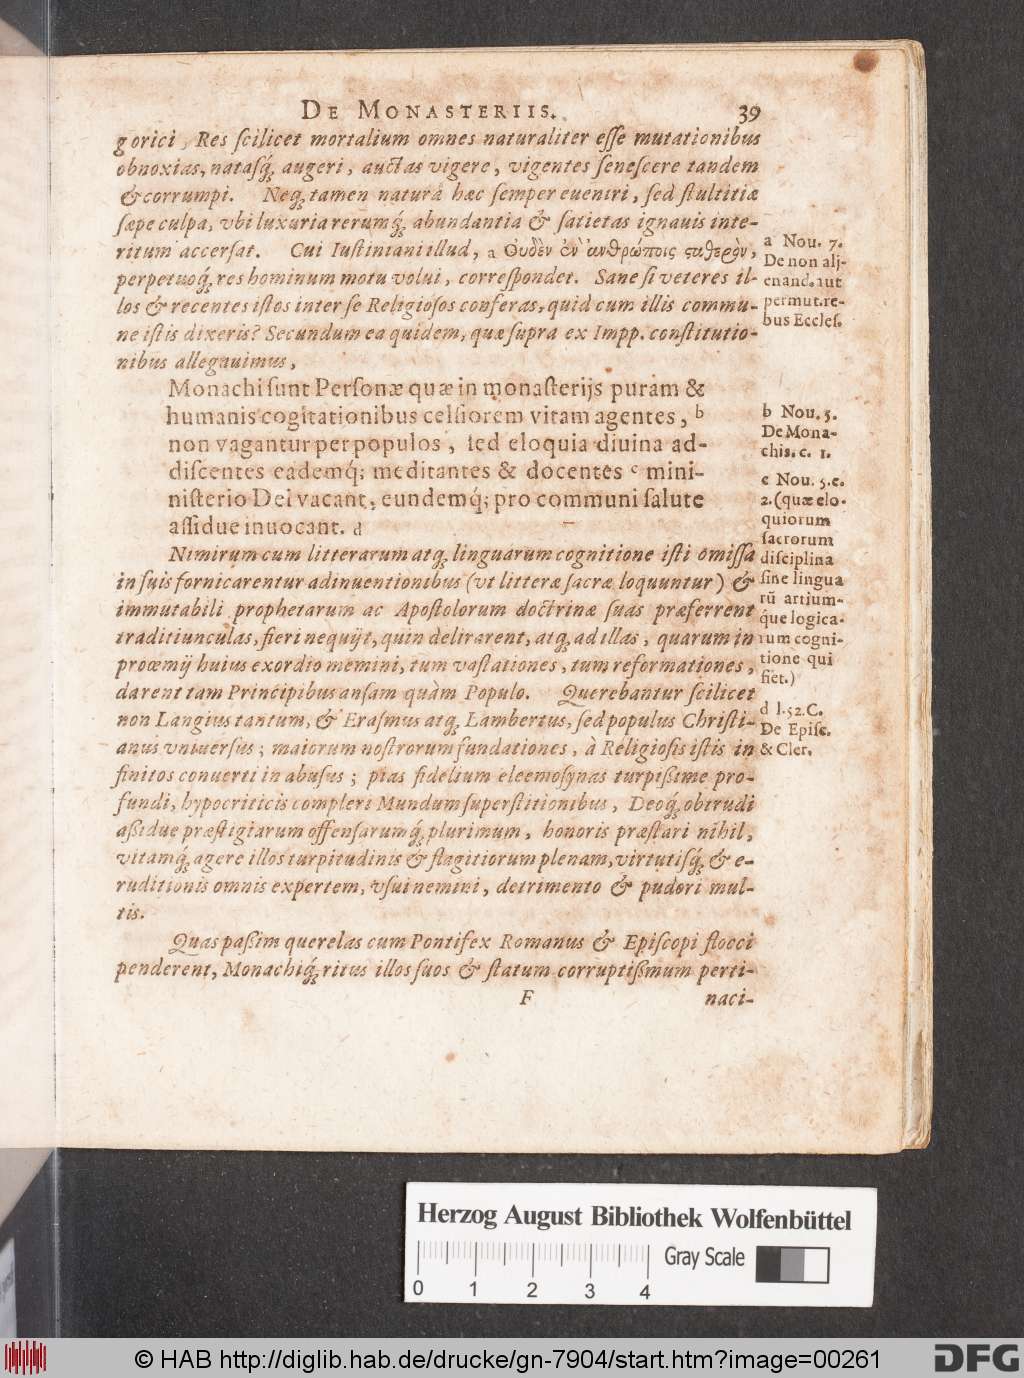 DE MONASTERIIS. 39
gorici, Res ſcilicet mortalium omnes naturaliter eſſe mutationibus
obnoxias, natasq́; augeri, auctas vigere, vigentes ſeneſcere tandem
& corrumpi. Neq; tamen naturâ hæc ſemper eueniri, ſed ſtultitiæ
ſæpe culpa, vbi luxuria rerumq́; abundantia & ſatietas ignauis inte-
ritum accerſat. Cui Iuſtiniani illud, a Οὐδὲν ἐν ἀνθρώποις σαθερὸν,
perpetuoq́; res hominum motu volui, correſpondet. Sane ſi veteres il-
los & recentes iſtos inter ſe Religioſos conferas, quid cum illis commu-
ne iſtis dixeris? Secundum ea quidem, quæ ſupra ex Impp. conſtitutio-
nibus allegauimus,
Monachi ſunt Perſonæ quæ in monaſterijs puram &
humanis cogitationibus celſiorem vitam agentes, b
non vagantur per populos, ſed eloquia diuina ad-
diſcentes eademq́; meditantes & docentes c mini-
niſterio Dei vacant, eundemq́; pro communi ſalute
aſſidue inuocant. d
Nimirum cum litterarum atq; linguarum cognitione iſti omiſſa
in ſuis fornicarentur adinuentionibus (vt litteræ ſacræ loquuntur) &
immutabili prophetarum ac Apoſtolorum doctrinæ ſuas præferrent
traditiunculas, fieri nequijt, quin delirarent, atq; ad illas, quarum in
proœmij huius exordio memini, tum vaſtationes, tum reformationes,
darent tam Principibus anſam quàm Populo. Querebantur ſcilicet
non Langius tantum, & Eraſmus atq; Lambertus, ſed populus Chriſti-
anus vniuerſus; maiorum noſtrorum fundationes, à Religioſis iſtis in
finitos conuerti in abuſus; pias fidelium eleemoſynas turpißime pro-
fundi, hypocriticis compleri Mundum ſuperſtitionibus, Deoq́; obtrudi
aßidue præſtigiarum offenſarumq́; plurimum, honoris præſtari nihil,
vitamq́; agere illos turpitudinis & flagitiorum plenam, virtutisq́; & e-
ruditionis omnis expertem, vſui nemini, detrimento & pudori mul-
tis.
Quas paßim querelas cum Pontifex Romanus & Epiſcopi flocci
penderent, Monachiq́; ritus illos ſuos & ſtatum corruptißimum perti-
F naci-
a Nou. 7.
De non alj-
enand. aut
permut. re-
bus Eccleſ.
b Nou. 5.
De Mona-
chis. c. 1.
c Nou. 5. c.
2. (quæ elo-
quiorum
ſacrorum
diſciplina
ſine lingua
rū artium-
q́ue logica-
rum cogni-
tione qui
fiet.)
d l. 52. C.
De Epiſc.
& Cler.
Herzog August Bibliothek Wolfenbüttel
Gray Scale
0 1 2 3 4
© HAB http://diglib.hab.de/drucke/gn-7904/start.htm?image=00261
DFG